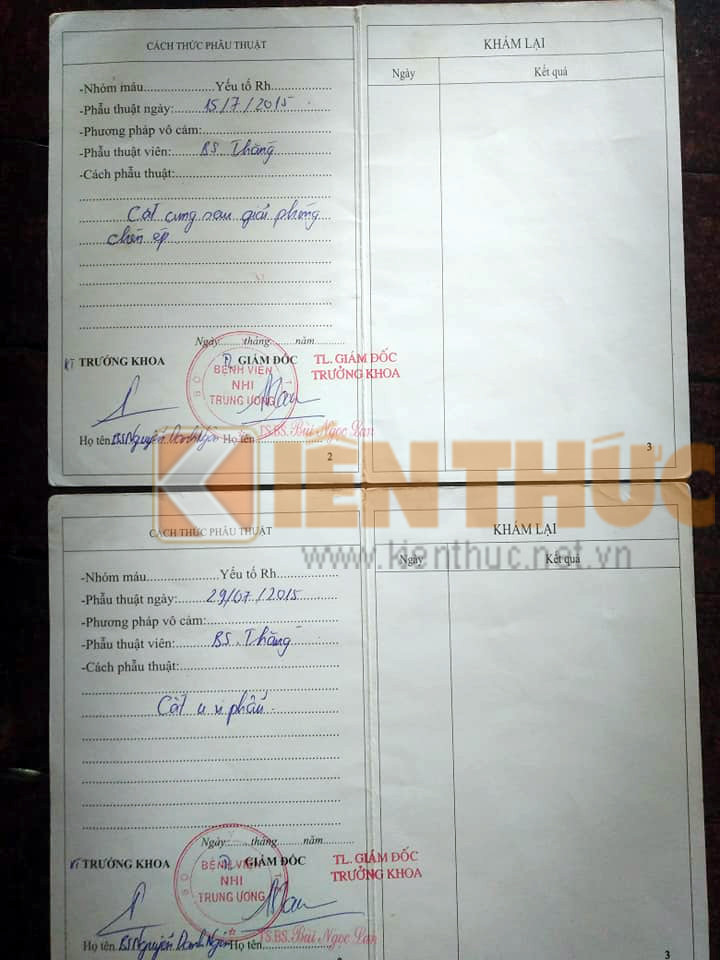 CÁCH THỨC PHẪU THUẬT
-Nhóm máu......................Yếu tố Rh...................
-Phẫu thuật ngày:........15/7/2015......
-Phương pháp vô cảm:.......................................
-Phẫu thuật viên:........BS. Thắng.................
-Cách phẫu thuật:...............................................
Cắt cung sau giải phóng
chèn ép
Ngày........tháng........năm..........
KT TRƯỞNG KHOA
GIÁM ĐỐC
TL. GIÁM ĐỐC
TRƯỞNG KHOA
BỆNH VIỆN
NHI
TRUNG ƯƠNG
Họ tên BS Nguyễn Doanh Ngân
Họ tên TS.BS. Bùi Ngọc Lan
2
KHÁM LẠI
Ngày Kết quả
3
KIẾN THỨC
www.kienthuc.net.vn
CÁCH THỨC PHẪU THUẬT
-Nhóm máu......................Yếu tố Rh...................
-Phẫu thuật ngày:........29/07/2015......
-Phương pháp vô cảm:.......................................
-Phẫu thuật viên:........BS. Thắng.................
-Cách phẫu thuật:...............................................
Cắt u vi phẫu
Ngày........tháng........năm..........
KT TRƯỞNG KHOA
GIÁM ĐỐC
TL. GIÁM ĐỐC
TRƯỞNG KHOA
BỆNH VIỆN
NHI
TRUNG ƯƠNG
Họ tên BS Nguyễn Doanh Ngân
Họ tên TS.BS. Bùi Ngọc Lan
KHÁM LẠI
Ngày Kết quả
3